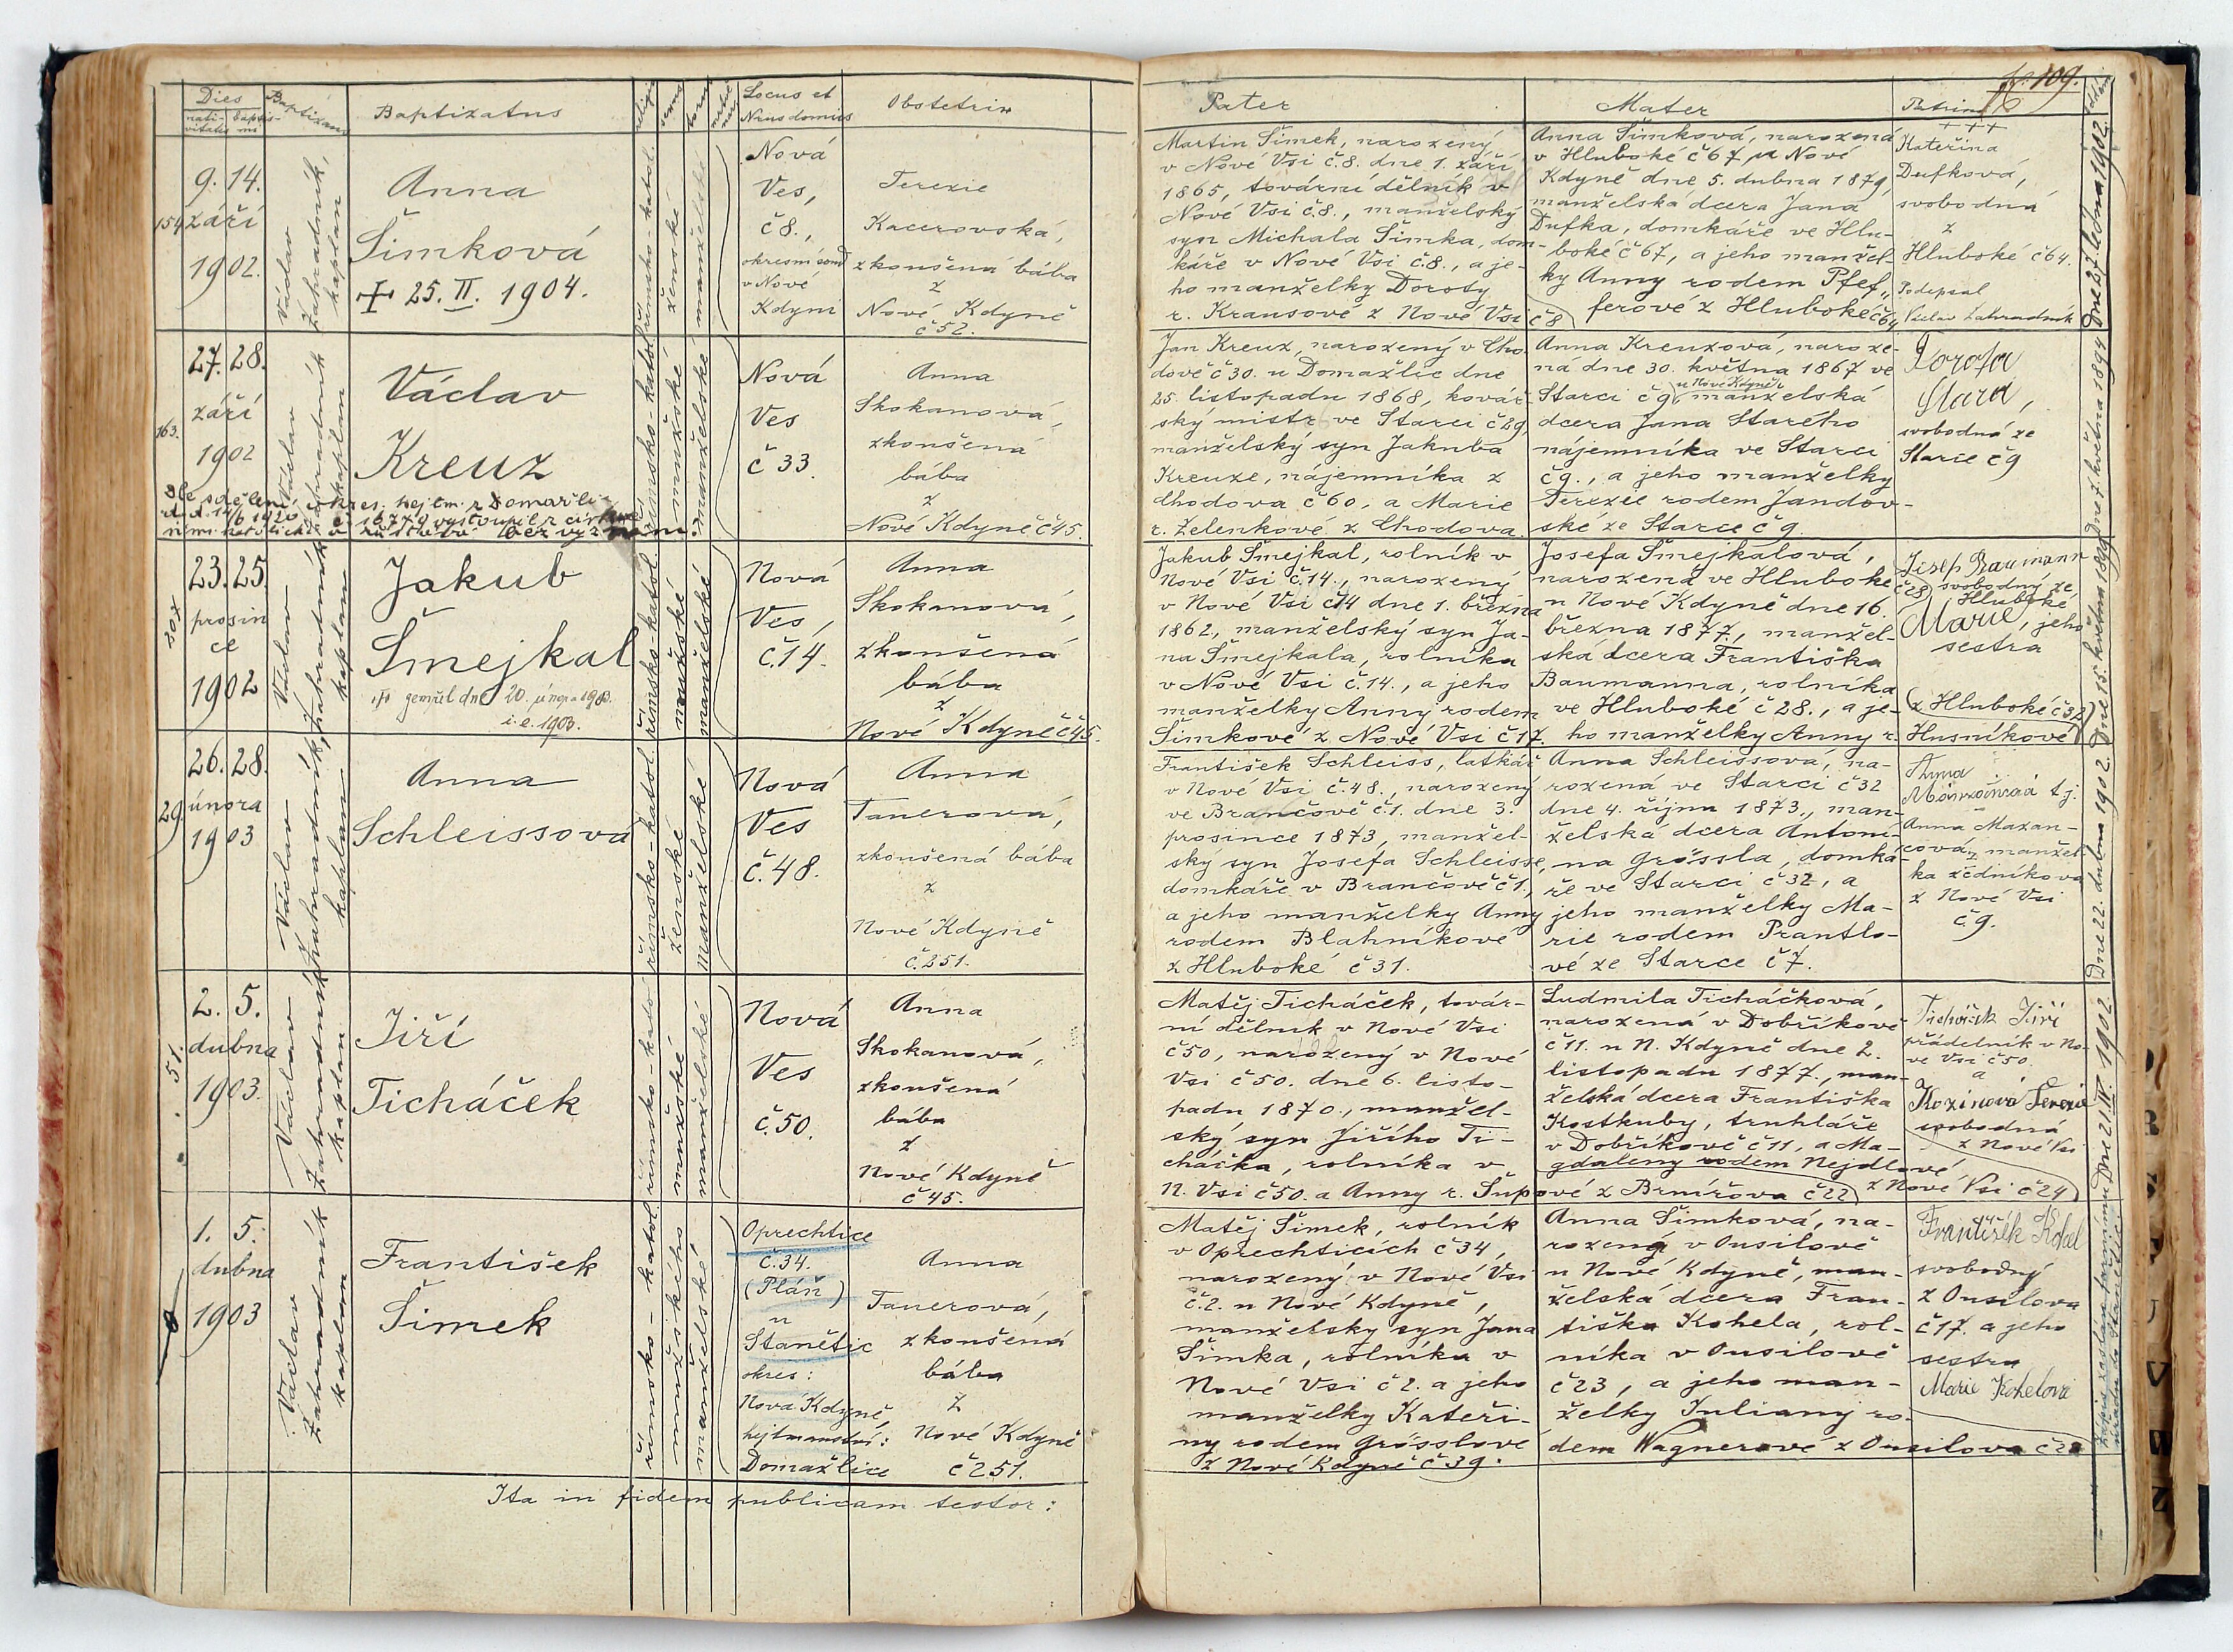 Dies
nati-
vitatis
baptis-
mi
Baptizans
Baptizatus
religio
Locus et
Nrus domus
Obstetrix
9. 14.
154
září
1902.
Václav
Zahradník,
kaplan
Anna
Šimková
25. II. 1904.
římsko-katol.
ženské
manželské
Nová
Ves,
č 8.,
okresní soud
v Nové
Kdyni
Terezie
Kacerovská,
zkoušená bába
z
Nové Kdyně
č 52.
27. 28.
září
163.
1902
Václav
Zahradník
kaplan
Václav
Kreuz
římsko-katol.
mužské
manželské
Nová
Ves
č 33.
Anna
Skokanová,
zkoušená
bába
z
Nové Kdyně č 45.
23. 25.
prosin
ce
1902
Václav
Zahradník
kaplan
Jakub
Šmejkal
zemřel dne 20. února 1903.
i. e. 1903.
římsko-katol.
mužské
manželské
Nová
Ves,
č. 14.
Anna
Skokanová,
zkoušená
bába
z
Nové Kdyně č 45.
26. 28.
29.
února
1903
Václav
Zahradník,
kaplan
Anna
Schleissová
římsko-katol.
ženské
manželské
Nová
Ves
č. 48.
Anna
Tanerová,
zkoušená bába
z
Nové Kdyně
č. 251.
2. 5.
dubna
51.
1903.
Václav
Zahradník
kaplan
Jiří
Ticháček
římsko-kato
mužské
manželské
Nová
Ves
č. 50.
Anna
Skokanová,
zkoušená
bába
z
Nové Kdyně
č 45.
1. 5.
dubna
1903
Václav
Zahradník
kaplan
František
Šimek
římsko-katol.
mužského
manželské
Oprechtice
č. 34.
(Pláň)
u
Stanětic
okres:
Nová Kdyně,
hejtmanství:
Domažlice
Anna
Tanerová,
zkoušená
bába
z
Nové Kdyně
č 251.
Ita in fidem publicam testor:
109.
Pater
Mater
Patrini
Martin Šimek, narozený
v Nové Vsi č. 8. dne 1. září
1865, tovární dělník v
Nové Vsi č. 8., manželský
syn Michala Šimka, dom-
káře v Nové Vsi č. 8., a je-
ho manželky Doroty
r. Krausové z Nové Vsi
č 8
Anna Šimková, narozená
v Hluboké č 67 u Nové
Kdyně dne 5. dubna 1879,
manželská dcera Jana
Dufka, domkáře ve Hlu-
boké č 67, a jeho manžel-
ky Anny rodem Pfef„
ferové z Hluboké č 64
Kateřina
Dufková,
svobodná
z
Hluboké č 64.
Podepsal
Václav Zahradník
Jan Kreuz, narozený v Cho-
dově č 30. u Domažlic dne
25. listopadu 1868, kovář-
ský mistr ve Starci č 29,
manželský syn Jakuba
Kreuze, nájemníka z
Chodova č 60, a Marie
r. Zelenkové z Chodova.
Anna Kreuzová, naroze-
ná dne 30. května 1867 ve
u Nové Kdyně
Starci č 9, manželská
dcera Jana Starého
nájemníka ve Starci
č 9., a jeho manželky
Terezie rodem Jandov-
ské ze Starce č 9.
Dorota
Stará,
svobodná ze
Starce č 9
Jakub Šmejkal, rolník v
Nové Vsi č. 14., narozený
v Nové Vsi č 14 dne 1. března
1862, manželský syn Ja-
na Šmejkala, rolníka
v Nové Vsi č. 14., a jeho
manželky Anny rodem
Šimkové z Nové Vsi č 17.
Josefa Šmejkalová,
narozená ve Hluboké
u Nové Kdyně dne 16.
března 1877., manžel-
ská dcera Františka
Baumanna, rolníka
ve Hluboké č 28., a je-
ho manželky Anny r.
Josep Baumann
č 28 svobodný ze
Hluboké
Marie, jeho
sestra
z Hluboké č 32
Husníkové
František Schleiss, latkář
v Nové Vsi č. 48., narozený
ve Brančově č 1. dne 3.
prosince 1873, manžel-
ský syn Josefa Schleisse,
domkáře v Brančově č 1.,
a jeho manželky Anny
rodem Blahníkové
z Hluboké č 31.
Anna Schleissová, na-
rozená ve Starci č 32
dne 4. října 1873., man-
želská dcera Antoní-
na Grössla, domká-
ře ve Starci č 32, a
jeho manželky Ma-
rie rodem Prantlo-
vé ze Starce č 7.
Anna
t. j.
Anna Mazan-
cová, manžel-
ka zedníkova
z Nové Vsi
č 9.
Matěj Ticháček, továr-
ní dělník v Nové Vsi
č 50, narozený v Nové
Vsi č 50. dne 6. listo-
padu 1870., manžel-
ský syn Jiřího Ti-
cháčka, rolníka v
N. Vsi č 50. a Anny r. Šupové z Brnířova č 22
Ludmila Ticháčková,
narozená v Dobříkově
č 11. u N. Kdyně dne 2.
listopadu 1877., man-
želská dcera Františka
Kostkuby, truhláře
v Dobříkově č 11, a Ma-
gdaleny rodem Nejdlové
Jiří
přádelník v No-
vé Vsi č 50.
a
Kozinová Terezie
svobodná
z Nové Vsi
z Nové Vsi č 24
Matěj Šimek, rolník
v Oprechticích č 34,
narozený v Nové Vsi
č. 2. u Nové Kdyně,
manželský syn Jana
Šimka, rolníka v
Nové Vsi č 2. a jeho
manželky Kateři-
ny rodem Grösslové
z Nové Kdyně č 39.
Anna Šimková, na-
rozená v Ousilově
u Nové Kdyně, man-
želská dcera Fran-
tiška Kohela, rol-
níka v Ousilově
č 23, a jeho man-
želky Juliany ro-
dem Wagnerové z Ousilova
František Kohel
svobodný
z Ousilova
č 17. a jeho
sestra
Marie Kohelová
Dne 22. dubna 1902.
Dne 21/IV. 1902